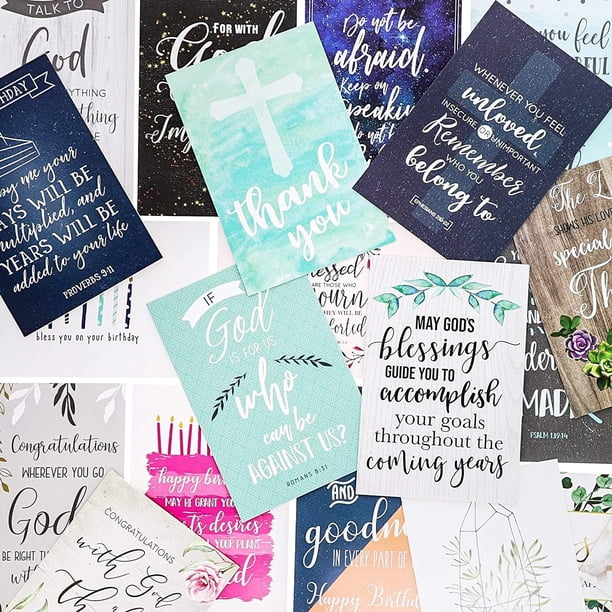 TALK TO
God
For with
God
Do not be
afraid.
Keep on
do not
you feel
THDAY
by me your
AYS WILL BE
multiplied, and
YEARS WILL BE
added to your life
PROVERBS 9:11
thank
you
WHENEVER YOU FEEL
unloved,
INSECURE OR UNIMPORTANT
Remember
WHO YOU
belong to
EPHESIANS
SHOWS HIS
special
bless you on your birthday
ARE THOSE WHO
ourn
EY WILL BE
IF
God
IS FOR US
who
can be
AGAINST US?
ROMANS 8:31
MAY GOD'S
blessings
GUIDE YOU TO
accomplish
your goals
throughout the
coming years
MADE
PSALM 139:14
Congratulations
WHEREVER YOU GO
God
BE RIGHT
CONGRATULATIONS
with God
happy
MAY HE GRANT YOU
desires
YOUR PLANS
AND
goodne
IN EVERY PART OF
Happy Birthd